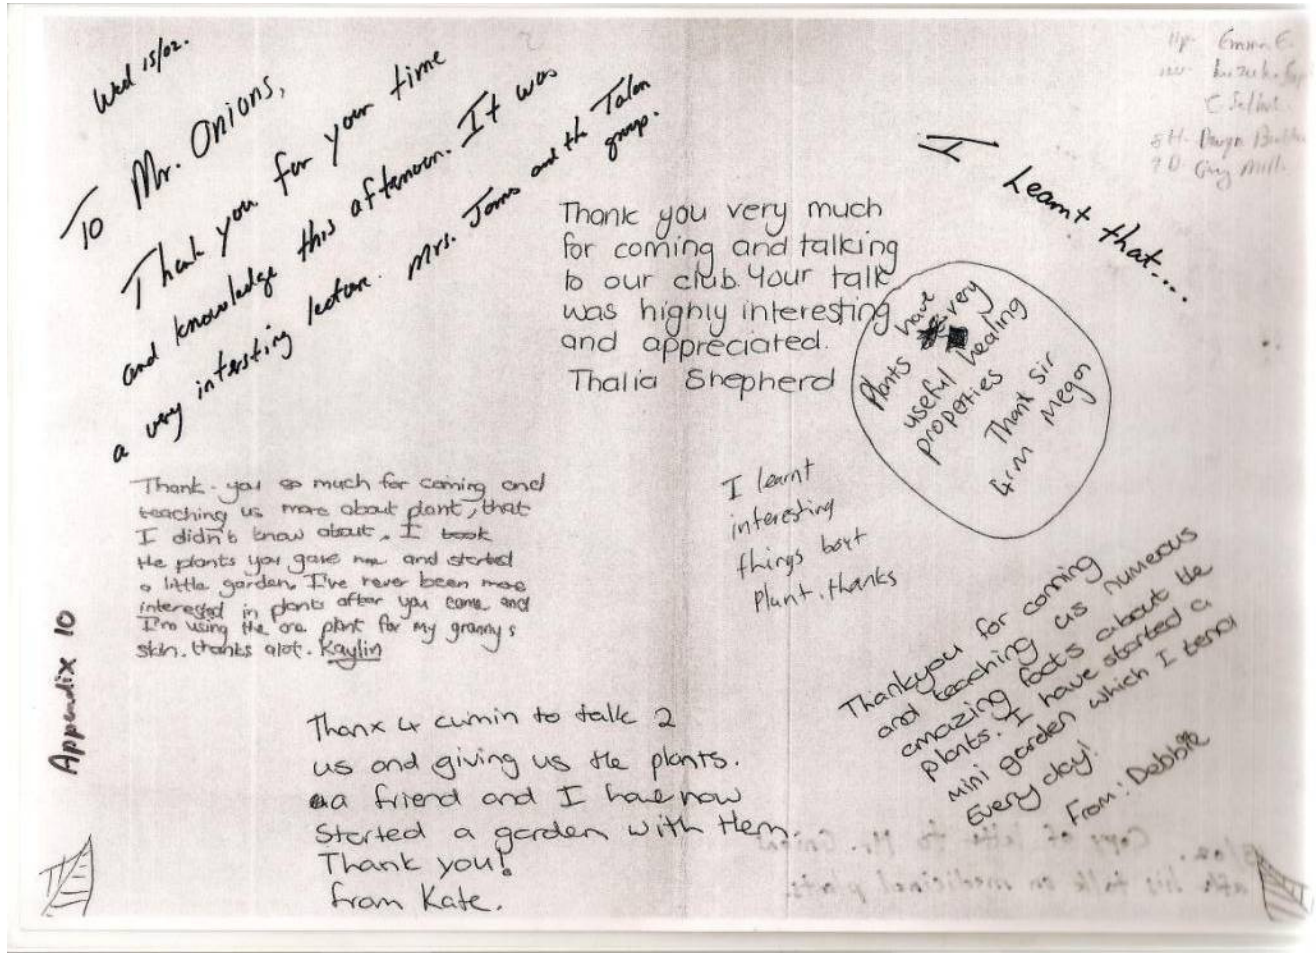 Wed 15/02.
To Mr. Onions,
Thank you for your time
and knowledge this afternoon. It was
a very intersting lecture. Mrs. and the Talen
group.
Emma E.
I Learnt that...
Thank you very much
for coming and talking
to our club. Your talk
was highly interesting
and appreciated.
Thalia Shepherd
Plants have very
useful healing
properties
Thank sir
4rm Megan
Thank-you so much for coming and
teaching us more about plant, that
I didn't know about. I took
the plants you gave me and started
a little garden. I've never been more
interested in plants after you came and
I'm using the one plant for my granny's
skin. thanks alot. Kaylin
I learnt
interesting
things boyt
plant. thanks
Thankyou for coming
and teaching us numerous
amazing facts about the
plants. I have started a
mini garden which I tend
Every day!
From: Debbie
Thanx 4 cumin to talk 2
us and giving us the plants.
a friend and I have now
Started a garden with them.
Thank you!
from Kate.
Appendix 10
Copy of letter to Mr. Onions
after his talk on medicinal plants.